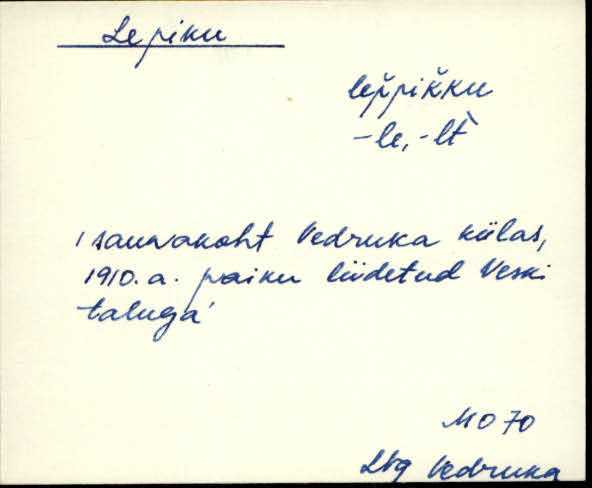 Lepiku
lep̆pik̆ku
-le, -lt̀
'sauнakoht Vedruka külas,
1910.a. paiku liidetud Veski
taluga'
MO 70
Lbg Vedruka